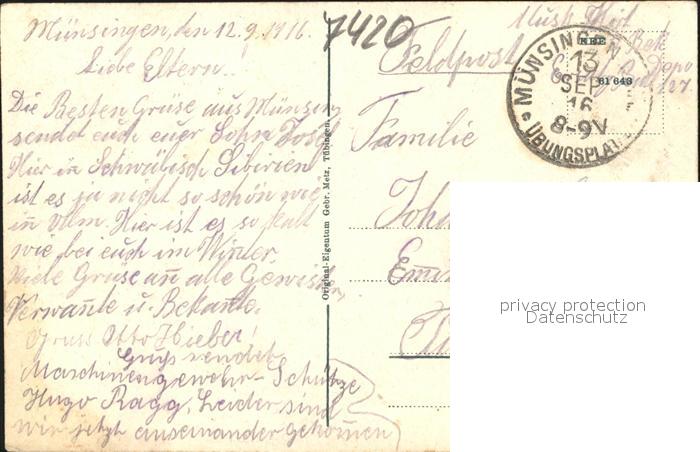 Münsingen, den 12.9.1916.
Liebe Eltern!
Die Besten Grüse aus Münsing
sendet euch euer Sohn Josef
Hier in Schwäbisch Sibirien
ist es ja nicht so schön wie
in Ulm. Hier ist es so kalt
wie bei euch im Winter.
Viele Grüse an alle Gewister,
Verwante u. Bekante.
Gruss Otto Hieber!
Grus sendet
Maschinengewehr-Schütze
Hugo Ragg. Leider sind
wir jetzt auseinander gekommen
Original-Eigentum Gebr. Metz, Tübingen.
7420
Feldpost
Musk.
MÜNSINGEN
13
SEP
16
8-9V
ÜBUNGSPLAT
61 643
Familie
Joh
privacy protection
Datenschutz